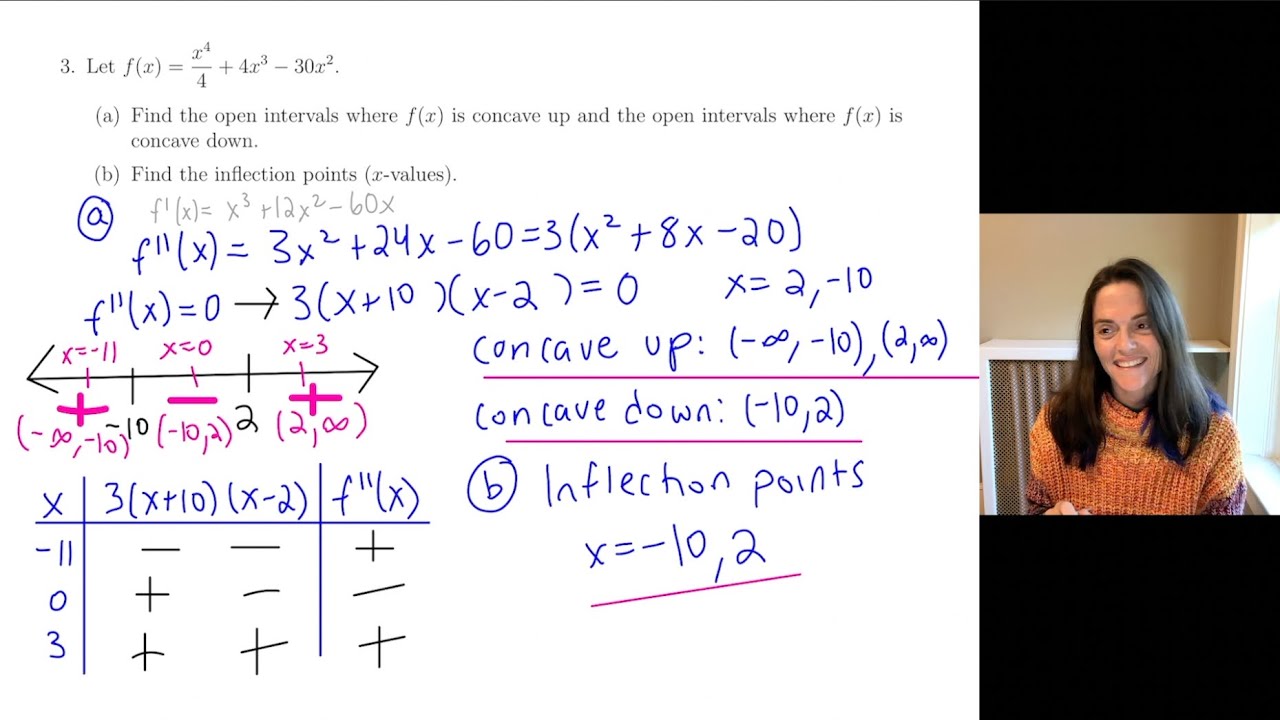 3. Let f(x) = x⁴/4 + 4x³ − 30x².
(a) Find the open intervals where f(x) is concave up and the open intervals where f(x) is
concave down.
(b) Find the inflection points (x-values).
ⓐ f'(x)= x³+12x²−60x
f''(x)= 3x²+24x−60=3(x²+8x−20)
f''(x)=0 → 3(x+10)(x−2)=0 x=2,−10
x=−11 x=0 x=3
+ − +
(−∞,−10) −10 (−10,2) 2 (2,∞)
concave up: (−∞,−10),(2,∞)
concave down: (−10,2)
ⓑ Inflection points
x=−10,2
x 3(x+10)(x−2) f''(x)
−11 − − +
0 + − −
3 + + +